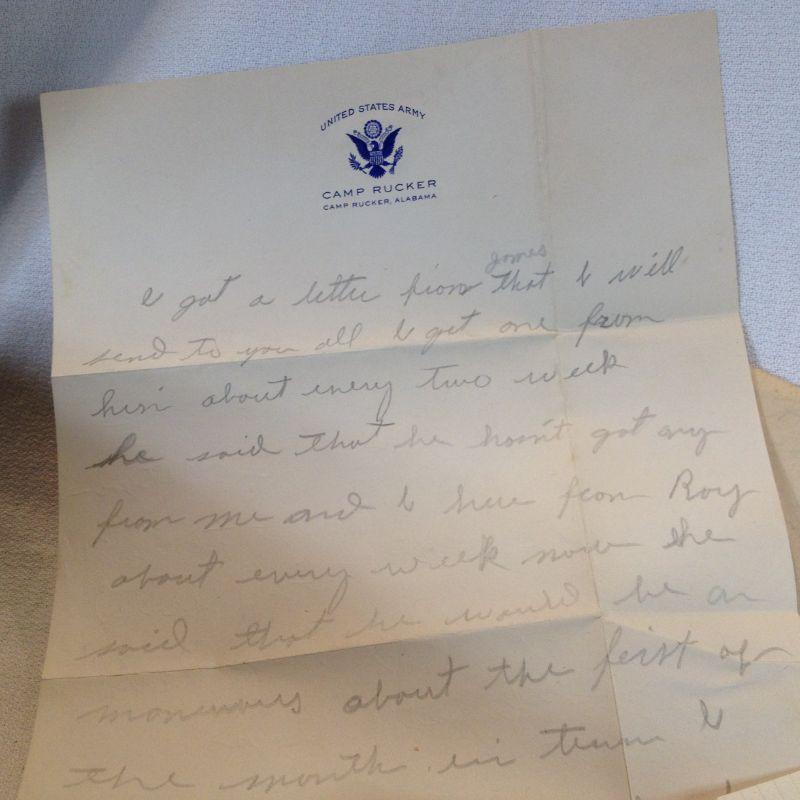 UNITED STATES ARMY
CAMP RUCKER
CAMP RUCKER, ALABAMA
James
I got a letter from that I will
send to you all I get one from
him about every two week
he said that he hasn't got any
from me and I here from Roy
about every week now he
said that he would be on
about the first of
the month in I